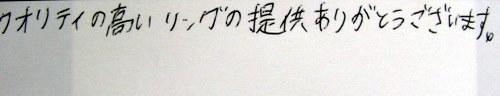 クオリティの高いリングの提供ありがとうございます。